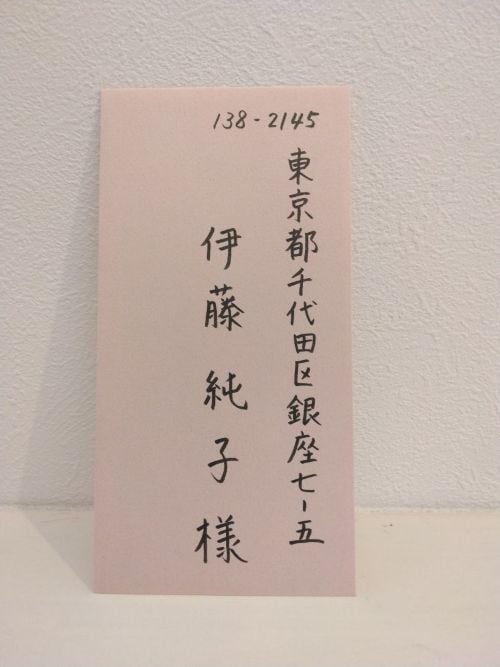 138-2145
東京都千代田区銀座七-五
伊藤純子様